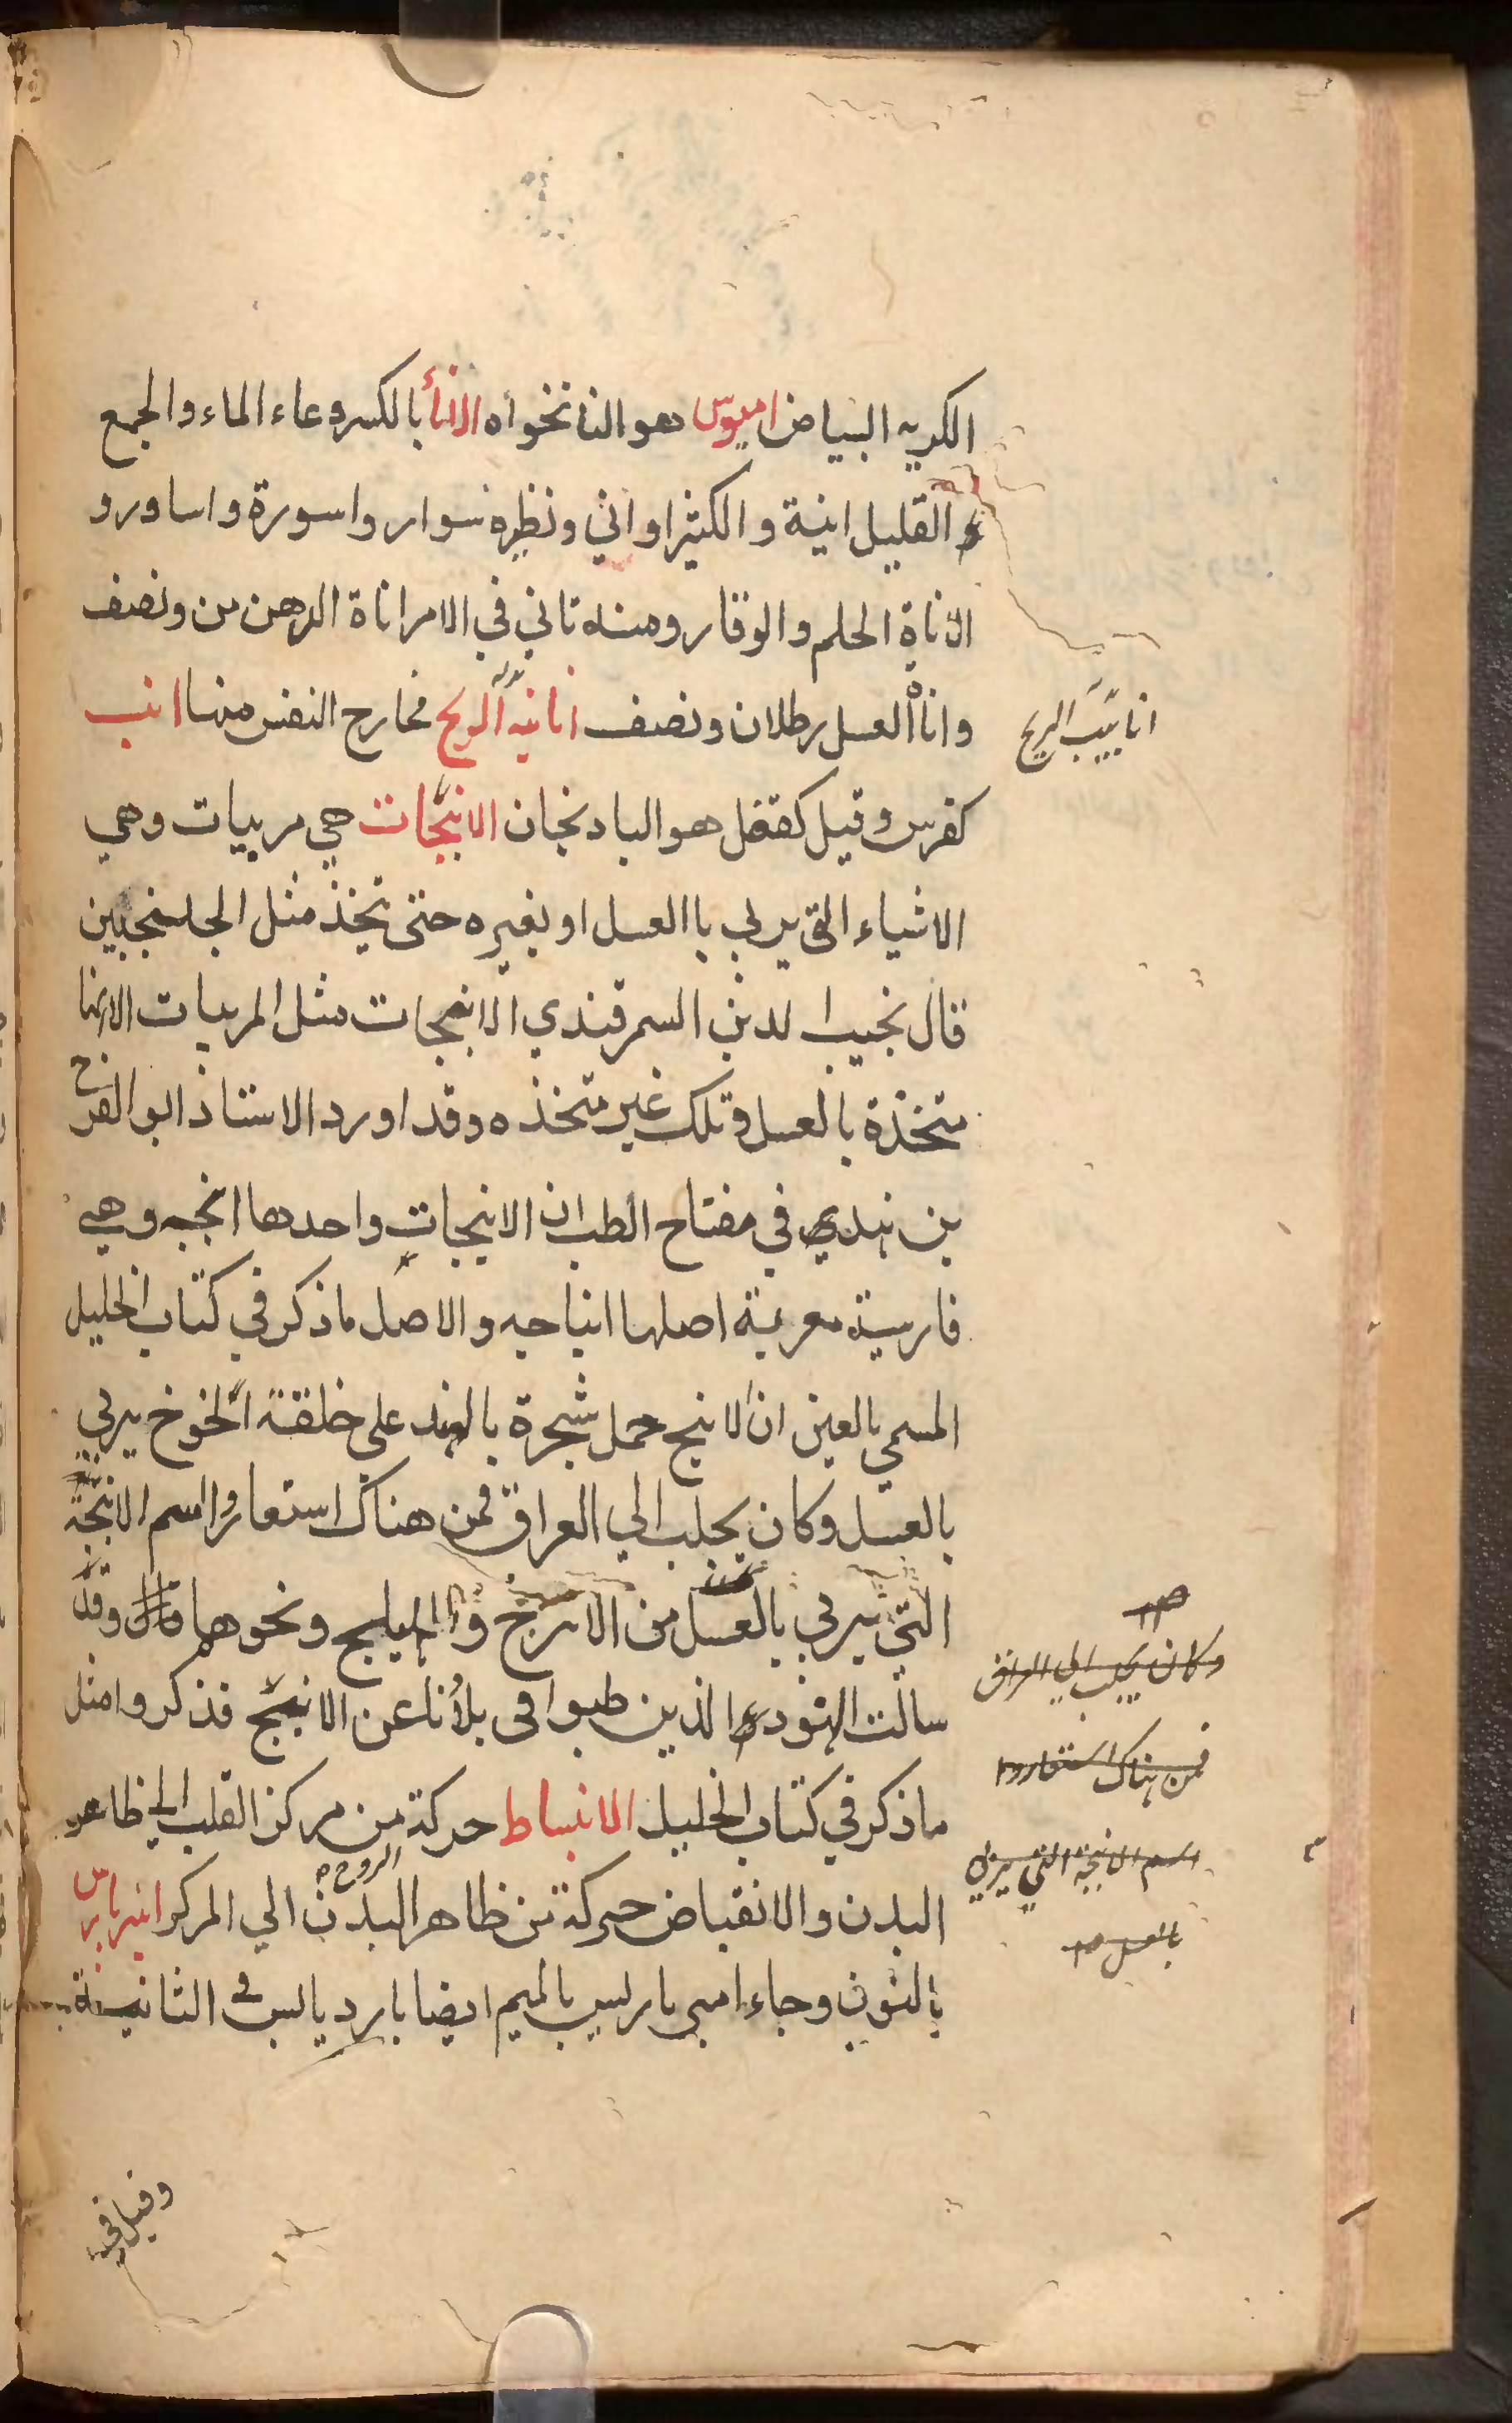 الكريه البياض اميوس هو النانخواه الاناء بالكسر وعاء الماء والجمع
القليل انية والكثير اواني ونظيره سوار واسورة واساورو
الاناة الحلم والوقار ومنه تاني في الامر اناة الدهن من ونصف
وانا العسل رطلان ونصف انانيه الريح مخارج النفس منها انب
انابيب الريح
كفرس وقيل كقفل هو البادنجان الانبجات هي مربيات وهي
الاشياء التى يربى باالعسل او بغيره حتى يتخذ مثل الجلنجبين
قال نجيب الدين السمرقندي الانبجات مثل المربيات الا انها
متخذة بالعسل وتلك غير متخذه وقد اورد الاستاذ ابو الفرج
بن هندي في مفتاح الطب ان الانبجات واحدها انبجه وهي
فارسية معربة اصلها والاصل ما ذكر في كتاب الخليل
المسمي بالعين ان الانبج حمل شجرة بالهند على خلقة الخوخ يربي
بالعسل وكان يجلب الي العراق فمن هناك استعاروا اسم الانبجة
التي يربي بالعسل من الاترج والهليلج ونحوهما قال وقد
سالت الهنود الذين طبوا في بلادنا عن الانبج فذكروا مثل
ما ذكر في كتاب الخليل الانبساط حركة من مركز القلب الي ظاهر
البدن والانقباض حركة الروح من ظاهر البدن الي المركز انبرباريس
بالنون وجاء امبرباريس بالميم ايضا بارد يابس في الثانية
وكان يجلب الي العراق
فمن هناك استعاروا
اسم الانبجة التي يربي
بالعسل
وقيل في